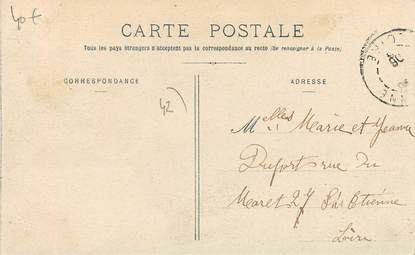 40€
CARTE POSTALE
Tous les pays étrangers n'acceptent pas la correspondance au recto (Se renseigner à la Poste)
CORRESPONDANCE
ADRESSE
42)
Melles Marie et Jeanne
Dufort rue du
Maret 27 St Etienne
Loire